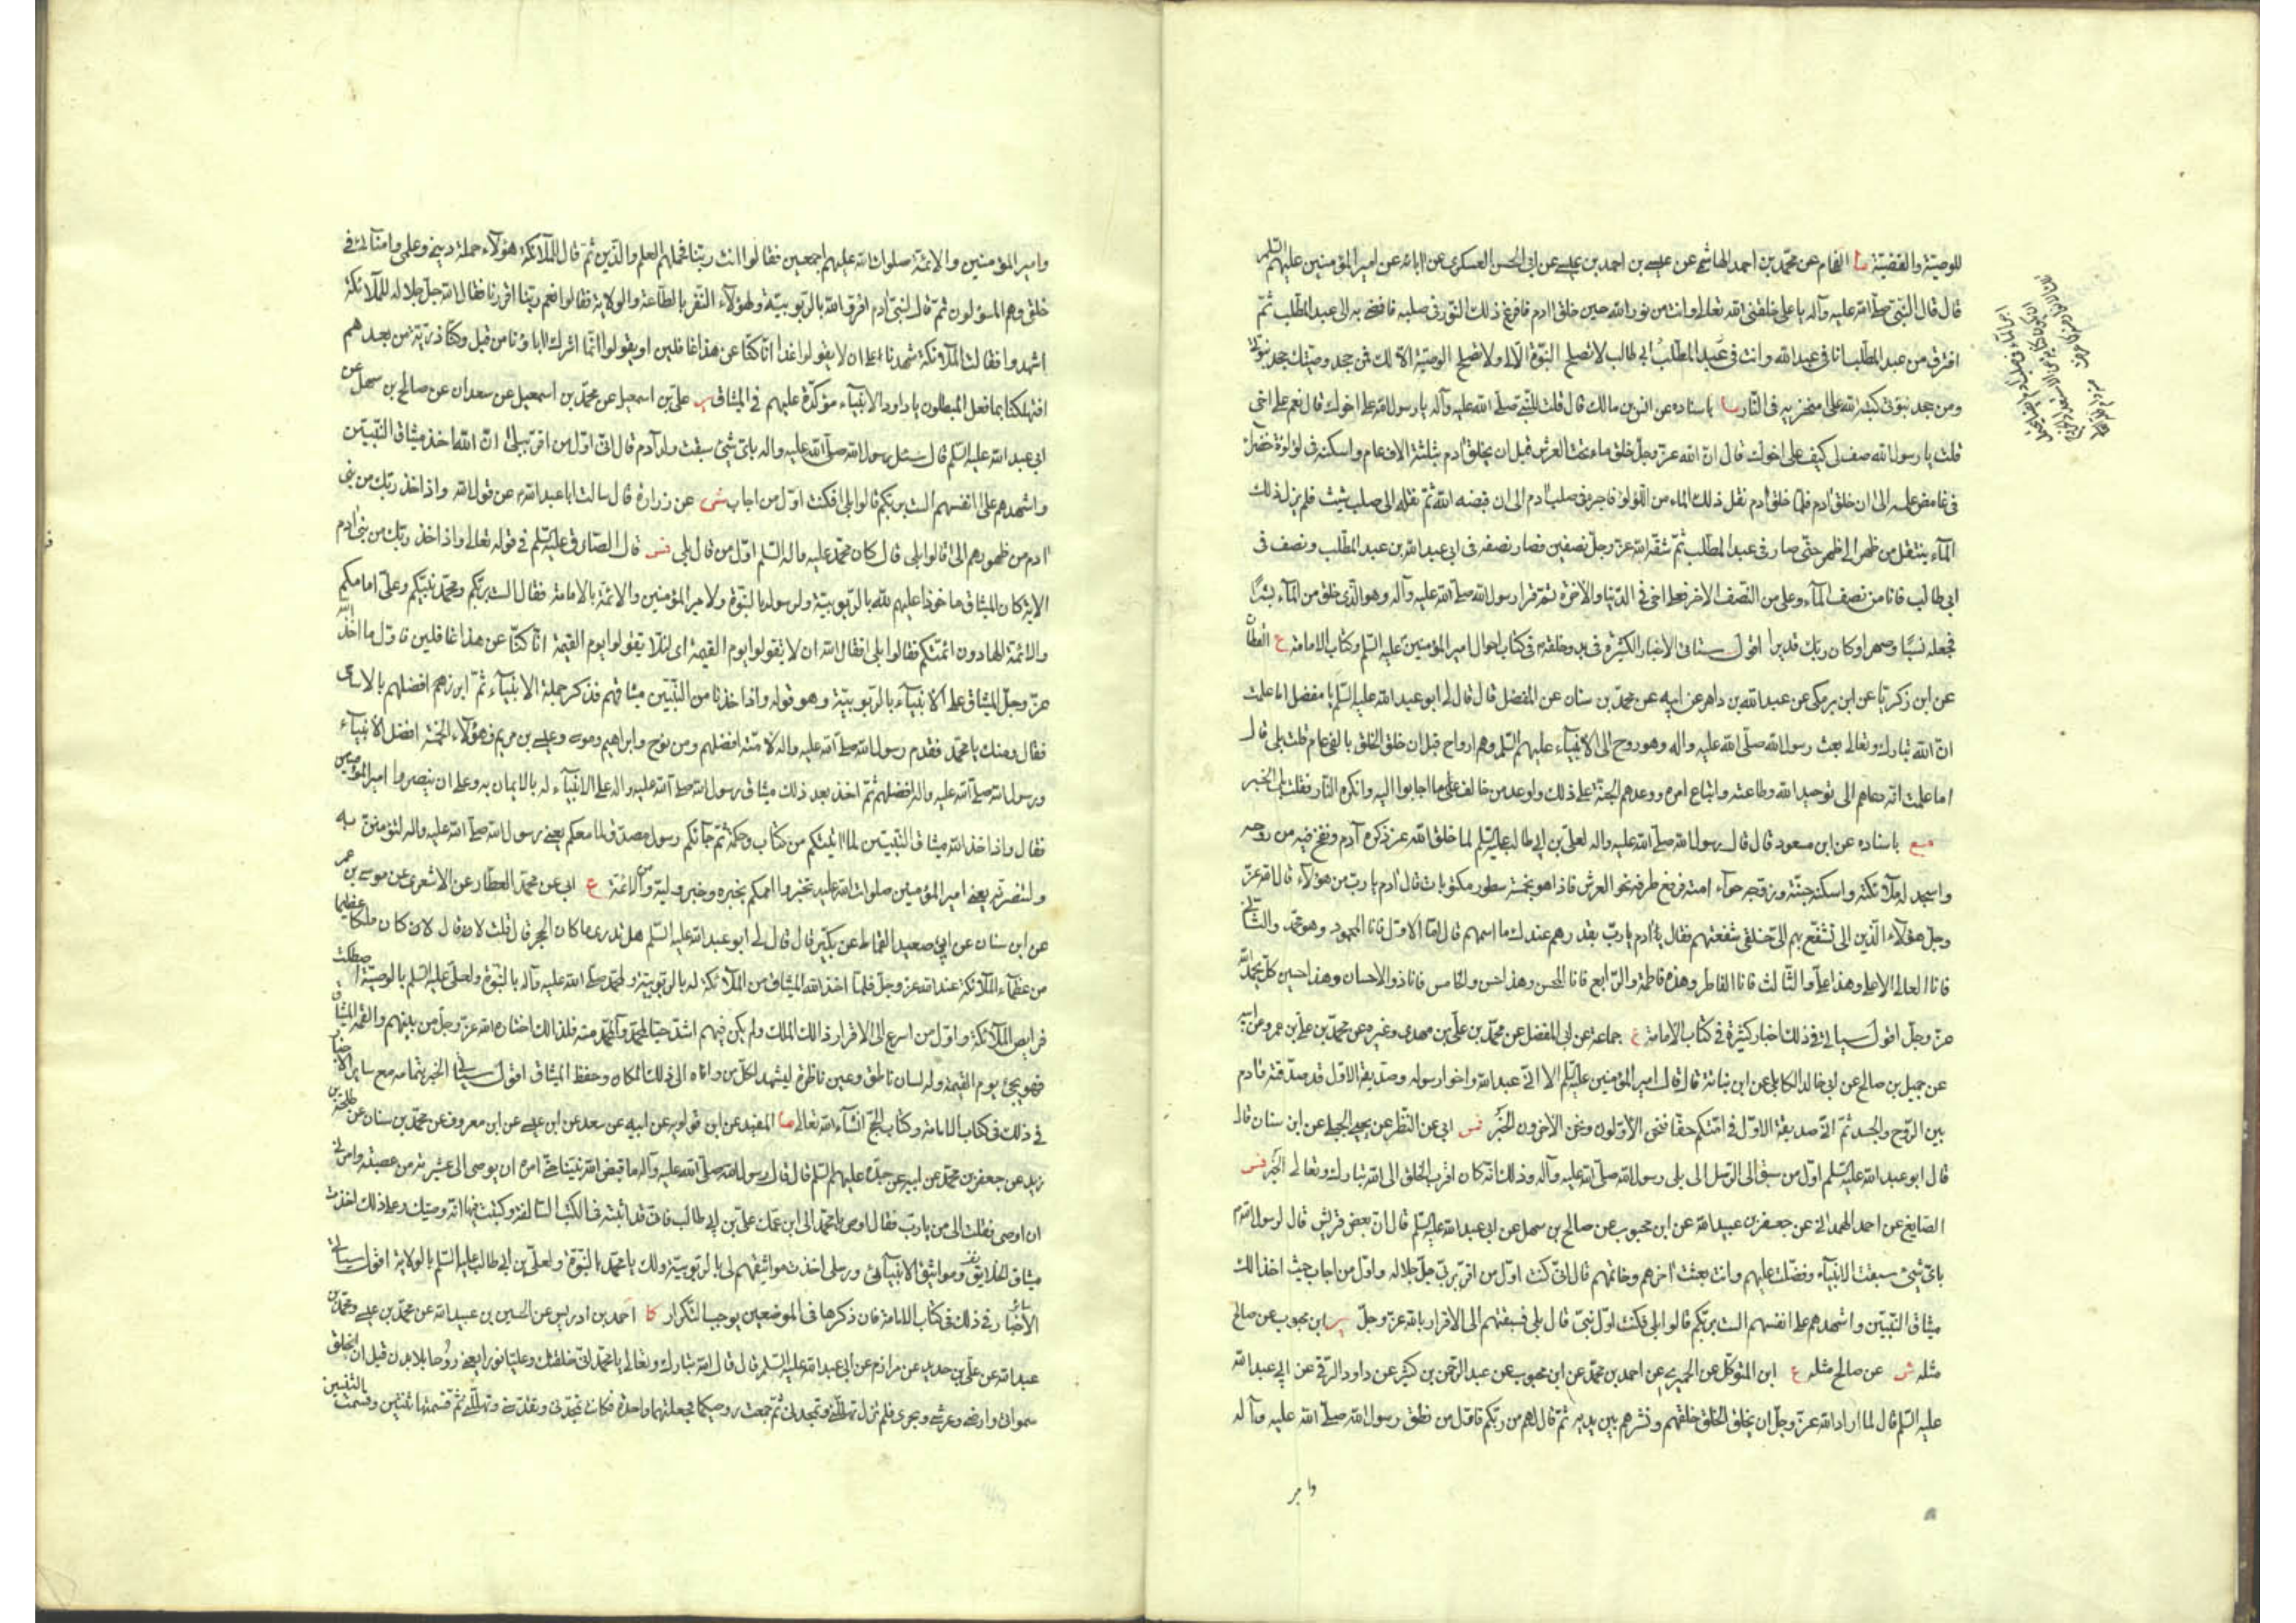 للوصية والقضية ما الفحام عن محمد بن احمد الهاشمي عن عيسى بن احمد بن عيسى عن ابي الحسن العسكري عن ابائه عن امير المؤمنين عليهم السلم
قال قال النبي صلى الله عليه وآله يا علي خلقني الله تعالى وانت من نور الله حين خلق ادم فافرغ ذلك النور في صلبه فافضى به الى عبد المطلب ثم
افترق من عبد المطلب انا في عبد الله وانت في ابي طالب لا تصلح النبوة الا لي ولا تصلح الوصية الا لك فمن جحد وصيتك جحد نبوتي
ومن جحد نبوتي كبه الله على منخريه في النار ما باسناده عن انس بن مالك قال قلت للنبي صلى الله عليه وآله يا رسول الله علي اخوك قال نعم علي اخي
قلت يا رسول الله صف لي كيف علي اخوك قال ان الله عز وجل خلق ماء تحت العرش قبل ان يخلق ادم بثلثة الاف عام واسكنه في لؤلؤة خضراء
في غامض علمه الى ان خلق ادم فلما خلق ادم نقل ذلك الماء من اللؤلؤ فاجراه في صلب ادم الى ان قبضه الله ثم نقله الى صلب شيث فلم يزل ذلك
الماء ينتقل من ظهر الى ظهر حتى صار في عبد المطلب ثم شقه الله عز وجل نصفين فصار نصفه في ابي عبد الله بن عبد المطلب ونصف في
ابي طالب فانا من نصف الماء وعلي من النصف الاخر فعلي اخي في الدنيا والاخرة ثم قرا رسول الله صلى الله عليه وآله وهو الذي خلق من الماء بشرا
فجعله نسبا وصهرا وكان ربك قديرا اقول ستاتي الاخبار الكثيرة في بدو خلقهم في كتاب احوال امير المؤمنين عليه السلم وكتاب الامامة ع القطان
عن ابن زكريا عن ابن برمكي عن عبد الله بن داهر عن ابيه عن محمد بن سنان عن المفضل قال قال لي ابو عبد الله عليه السلم يا مفضل اما علمت
ان الله تبارك وتعالى بعث رسول الله صلى الله عليه واله وهو روح الى الانبياء عليهم السلم وهم ارواح قبل ان خلق الخلق بالفي عام قلت بلى قال
اما علمت انه دعاهم الى توحيد الله وطاعته واتباع امره ووعدهم الجنة على ذلك واوعد من خالف على ما اجابوا اليه وانكره النار فقلت بلى الخبر
مع باسناده عن ابن مسعود قال قال رسول الله صلى الله عليه واله لعلي بن ابي طالب عليه السلم لما خلق الله عز ذكره آدم ونفخ فيه من روحه
واسجد له ملائكته واسكنه جنته وزوجه حواء امته فرفع طرفه نحو العرش فاذا هو بخمسة سطور مكتوبات قال ادم يا رب من هؤلاء قال الله عز
وجل هؤلاء الذين اذا تشفع بهم الى خلقي شفعتهم فقال يا ادم يا رب بقدرهم عندك ما اسمهم قال اما الاول فانا المحمود وهو محمد والثاني
فانا العالي الاعلى وهذا علي والثالث فانا الفاطر وهذه فاطمة والرابع فانا المحسن وهذا حسن والخامس فانا ذو الاحسان وهذا حسين كل يحمد الله
عز وجل اقول سياتي في ذلك اخبار كثيرة في كتاب الامامة جماعة عن ابي المفضل عن محمد بن علي بن مهدي وغيره عن محمد بن علي بن عمرو عن ابيه
عن جميل بن صالح عن ابي خالد الكابلي عن ابن نباتة قال قال امير المؤمنين عليه السلم الا اني عبد الله واخو رسوله وصديقه الاول قد صدقته وآدم
بين الروح والجسد ثم اني صديقه الاول في امتكم حقا فنحن الاولون ونحن الاخرون الخبر فس ابي عن النظر عن يحيى الحلبي عن ابن سنان قال
قال ابو عبد الله عليه السلم اول من سبق الى الرسل الى بلى رسول الله صلى الله عليه وآله وذلك انه كان اقرب الخلق الى الله تبارك وتعالى الخبر فس
الصايغ عن احمد الهمداني عن جعفر بن عبيد الله عن ابن محبوب عن صالح بن سهل عن ابي عبد الله عليه السلم قال ان بعض قريش قال لرسول الله
باي شيء سبقت الانبياء وفضلت عليهم وانت بعثت اخرهم وخاتمهم قال اني كنت اول من اقر بربي جل جلاله واول من اجاب حيث اخذ الله
ميثاق النبيين واشهدهم على انفسهم الست بربكم قالوا بلى فكنت اول نبي قال بلى فسبقتهم الى الاقرار بالله عز وجل ير ابن محبوب عن صالح
مثله ش عن صالح مثله ع ابن المتوكل عن الحميري عن احمد بن محمد عن ابن محبوب عن عبد الرحمن بن كثير عن داود الرقي عن ابي عبد الله
عليه السلم قال لما اراد الله عز وجل ان يخلق الخلق خلقهم ونشرهم بين يديه ثم قال لهم من ربكم فاول من نطق رسول الله صلى الله عليه وآله
وامير
وامير المؤمنين والائمة صلوات الله عليهم اجمعين فقالوا انت ربنا فحملهم العلم والدين ثم قال للملائكة هؤلاء حملة ديني وعلمي وامنائي في
خلقي وهم المسؤلون ثم قال لبني آدم اقروا لله بالربوبية ولهؤلاء النفر بالطاعة والولاية فقالوا نعم ربنا اقررنا فقال الله جل جلاله للملائكة
اشهدوا فقالت الملائكة شهدنا على ان لا يقولوا غدا انا كنا عن هذا غافلين او يقولوا انما اشرك اباؤنا من قبل وكنا ذرية من بعدهم
افتهلكنا بما فعل المبطلون يا داود الانبياء مؤكدة عليهم في الميثاق ير علي بن اسمعيل عن محمد بن اسمعيل عن سعدان عن صالح بن سهل عن
ابي عبد الله عليه السلم قال سئل رسول الله صلى الله عليه واله باي شيء سبقت ولد آدم قال اني اول من اقر ببلى ان الله اخذ ميثاق النبيين
واشهدهم على انفسهم الست بربكم قالوا بلى فكنت اول من اجاب شى عن زرارة قال سالت ابا عبد الله عن قول الله واذ اخذ ربك من بني
ادم من ظهورهم الى قالوا بلى قال كان محمد عليه واله السلم اول من قال بلى فس قال الصادق عليه السلم في قوله تعالى واذ اخذ ربك من بني ادم
الاية كان الميثاق ماخوذا عليهم لله بالربوبية ولرسوله بالنبوة ولامير المؤمنين والائمة بالامامة فقال الست بربكم ومحمد نبيكم وعلي امامكم
والائمة الهادون ائمتكم فقالوا بلى فقال الله ان لا يقولوا يوم القيمة اى لئلا يقولوا يوم القيمة انا كنا عن هذا غافلين فاول ما اخذ الله
عز وجل الميثاق على الانبياء بالربوبية وهو قوله واذ اخذنا من النبيين ميثاقهم فذكر جملة الانبياء ثم ابرز هم افضلهم بالاسامي
فقال ومنك يا محمد فقدم رسول الله صلى الله عليه واله لانه افضلهم ومن نوح وابراهيم وموسى وعيسى بن مريم فهؤلاء الخمسة افضل الانبياء
ورسول الله صلى الله عليه واله افضلهم ثم اخذ بعد ذلك ميثاق رسول الله صلى الله عليه واله على الانبياء له بالايمان به وعلى ان ينصروا امير المؤمنين
فقال واذ اخذ الله ميثاق النبيين لما اتيتكم من كتاب وحكمة ثم جاءكم رسول مصدق لما معكم يعني رسول الله صلى الله عليه واله لتؤمنن به
ولتنصرنه يعني امير المؤمنين صلوات الله عليه تخبروا اممكم بخبره وخبر وليه من الائمة ع ابي عن محمد العطار عن الاشعري عن موسى بن عمر
عن ابن سنان عن ابي سعيد القماط عن بكير قال قال لي ابو عبد الله عليه السلم هل تدري ما كان الحجر قال قلت لا قال كان ملكا عظيما
من عظماء الملائكة عند الله عز وجل فلما اخذ الله الميثاق من الملائكة له بالربوبية ولمحمد صلى الله عليه وآله بالنبوة ولعلي عليه السلم بالوصية اصطكت
فرايص الملائكة واول من اسرع الى الاقرار ذلك الملك ولم يكن فيهم اشد حبا لمحمد وآل محمد منه فلذلك اختاره الله عز وجل من بينهم والقمه الميثاق
فهو يجئ يوم القيمة وله لسان ناطق وعين ناظرة ليشهد لكل من وافاه الى ذلك المكان وحفظ الميثاق اقول سياتي الخبر بتمامه مع ساير الاخبار
في ذلك في كتاب الامامة وكتاب الحج انشاء الله تعالى ما المفيد عن ابن قولويه عن ابيه عن سعد عن ابن عيسى عن ابن معروف عن محمد بن سنان عن طلحة بن
زيد عن جعفر بن محمد عن ابيه عن جده عليهم السلم قال قال رسول الله صلى الله عليه وآله ما قبض الله نبيا حتى امره ان يوصي الى عشيرته من عصبته وامرني
ان اوصي فقلت الى من يا رب فقال اوص يا محمد الى ابن عمك علي بن ابي طالب فاني قد اثبته في الكتب السالفة وكتبت فيها انه وصيك وعلى ذلك اخذت
ميثاق الخلايق ومواثيق الانبيائي ورسلي اخذت مواثيقهم لي بالربوبية ولك يا محمد بالنبوة ولعلي بن ابي طالب عليه السلم بالولاية اقول سياتي
الاخبار في ذلك في كتاب الامامة فان ذكرها في الموضعين يوجب التكرار كا احمد بن ادريس عن الحسين بن عبيد الله عن محمد بن عيسى ومحمد بن
عبد الله عن علي بن حديد عن مرازم عن ابي عبد الله عليه السلم قال قال الله تبارك وتعالى يا محمد اني خلقتك وعليا نورا يعني روحا بلا بدن قبل ان اخلق
سمواتي وارضي وعرشي وبحري فلم تزل تهللني وتمجدني ثم جمعت روحيكما فجعلتهما واحدة فكانت تمجدني وتقدسني وتهللني ثم قسمتها ثنتين وقسمت الثنتين